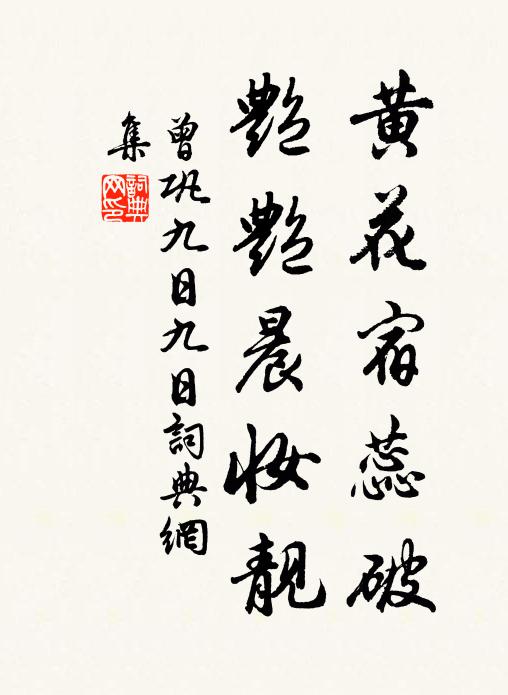 黄花宿蕊破
艷艷晨妝靚
曾巩九日九日詞典網
集
詞典網印